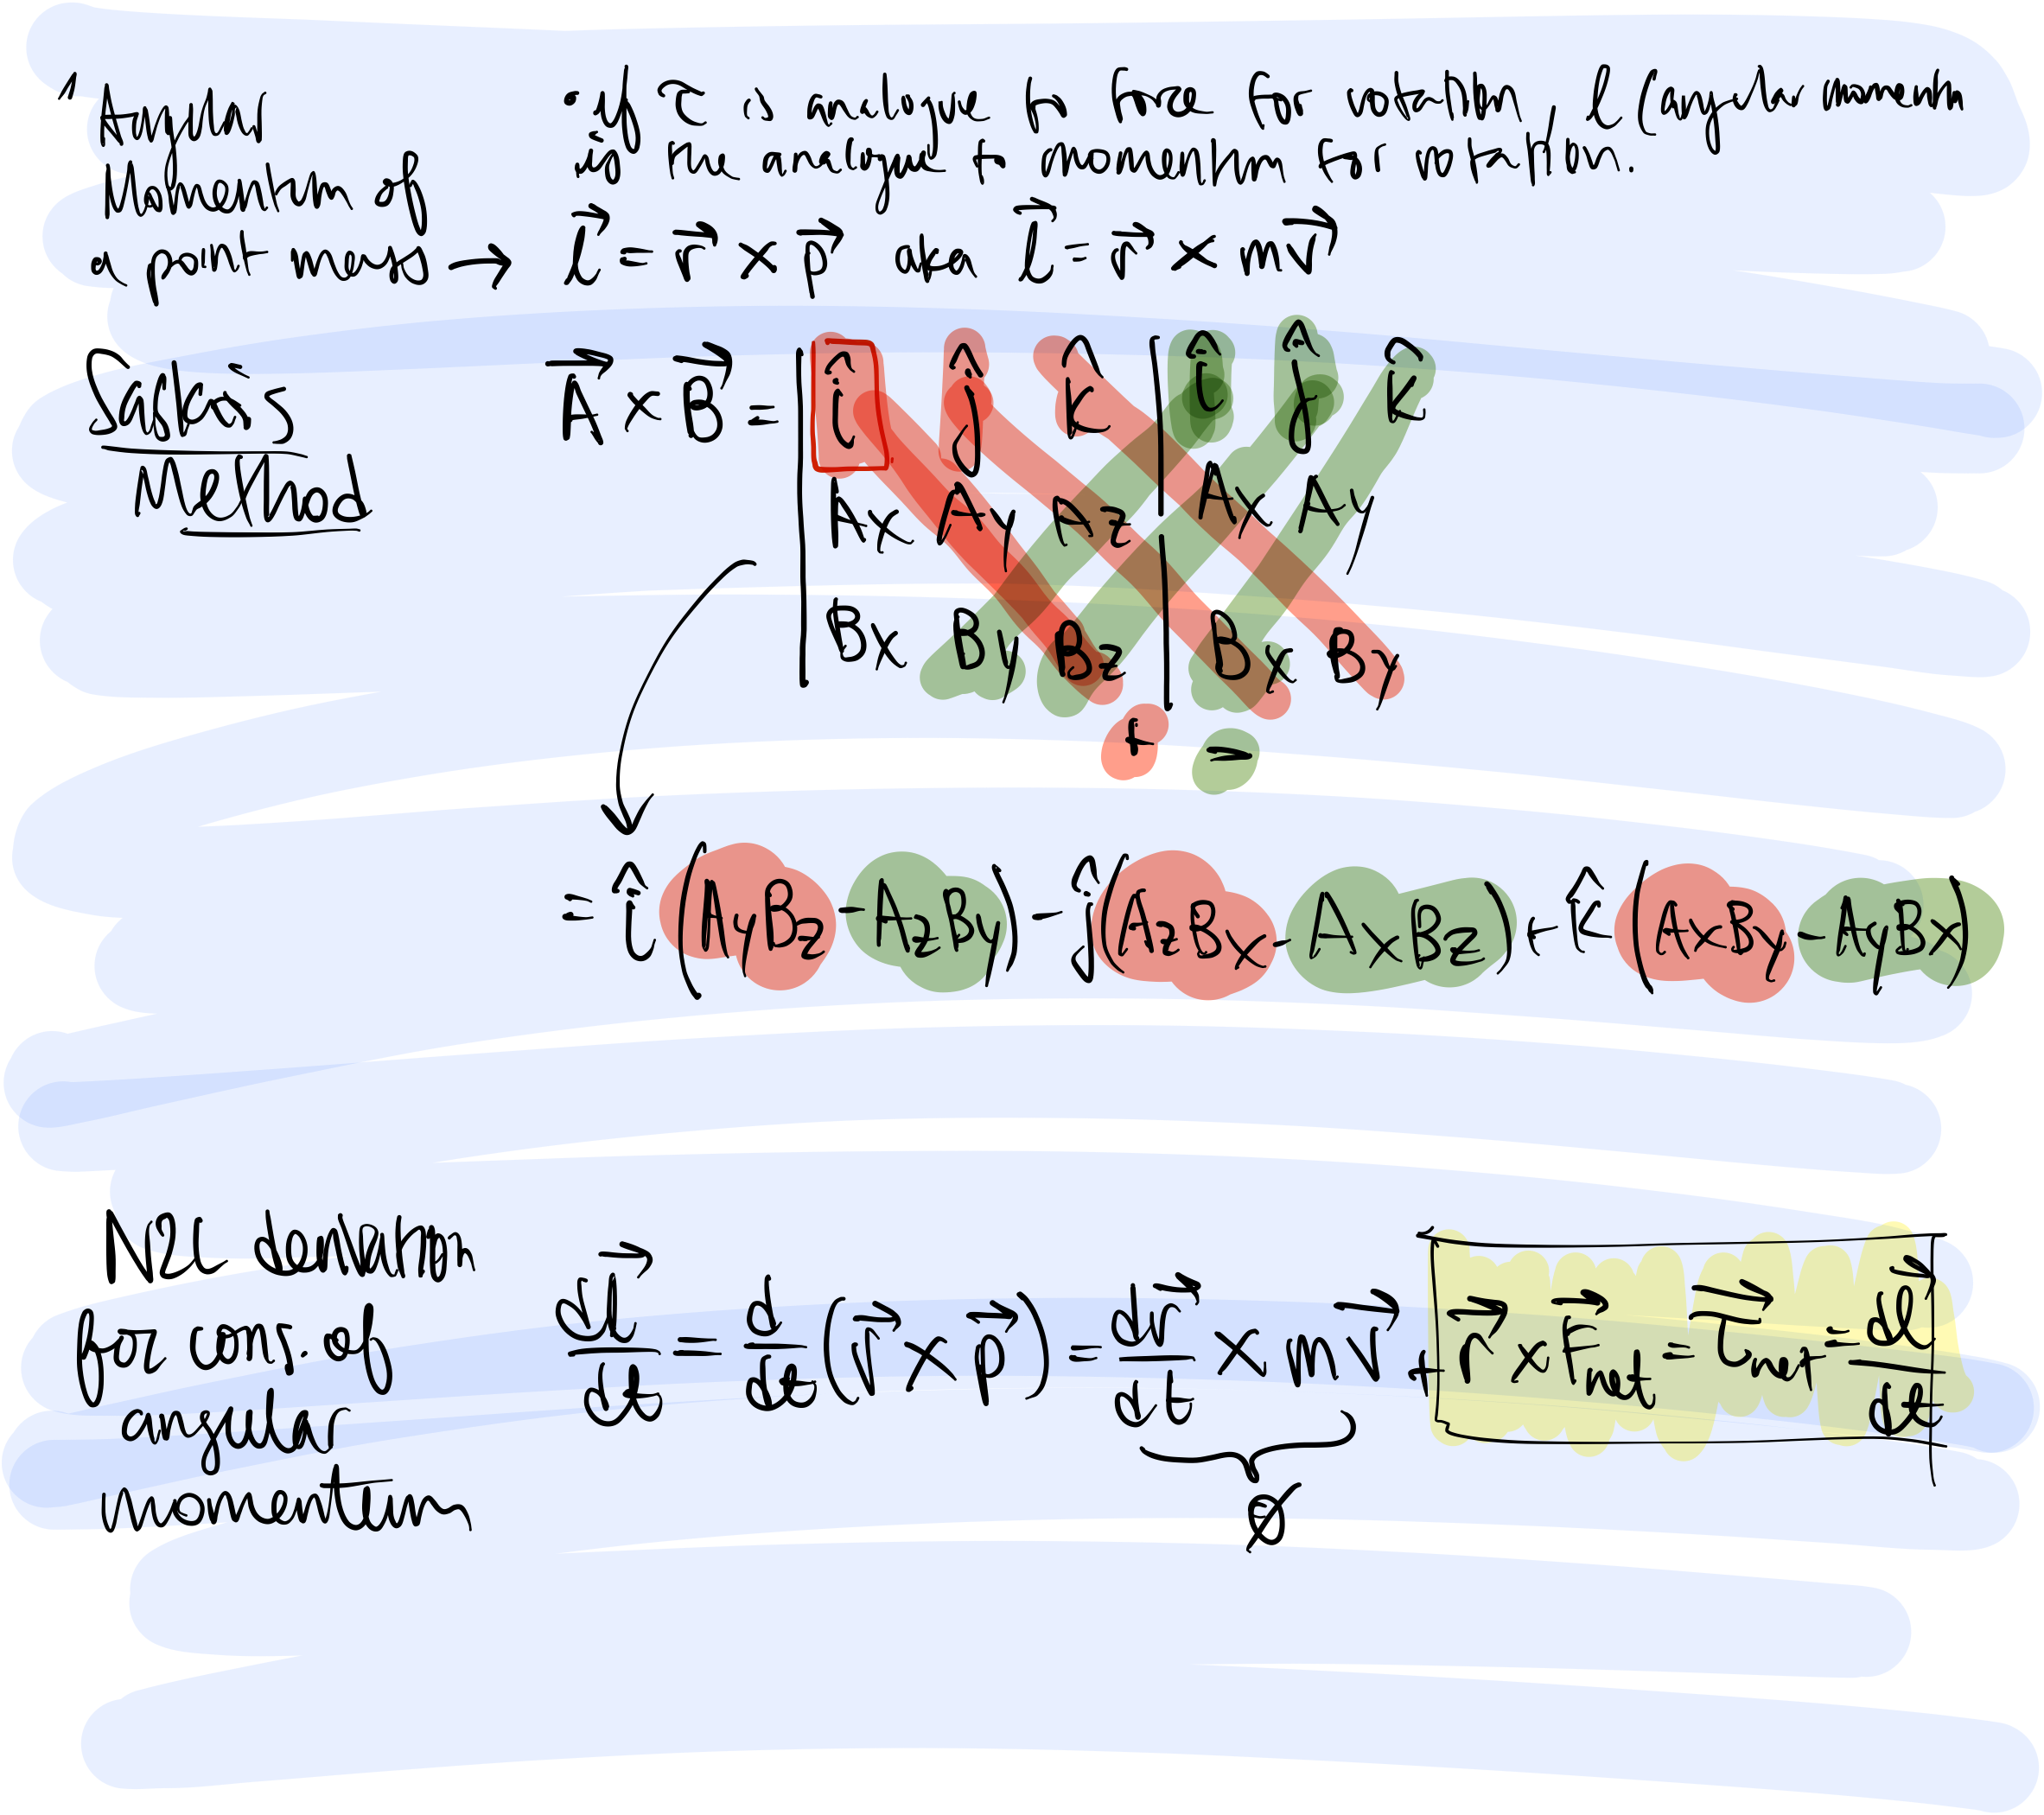 Angular
Momentum of
a point mass →
• if τ⃗ is analogue to force for rotation, L (angular momentum)
is the analogue to momentum for rotation.
L⃗ = r⃗ × p⃗ aka L⃗ = r⃗ × mv⃗
Sarrus
Method
A⃗ × B⃗ =
î ĵ k̂ | î ĵ k̂
Ax Ay Az | Ax Ay
Bx By Bz | Bx By
+ −
= î (AyBz − AzBy) − ĵ (AzBx − AxBz) + k̂ (AxBy − AyBx)
N2L derivation
for cons. of
angular
momentum
dL⃗/dt = d/dt (r⃗ × p⃗) = dr⃗/dt × mv⃗ + r⃗ × F⃗net = τ⃗net = dL⃗/dt
0